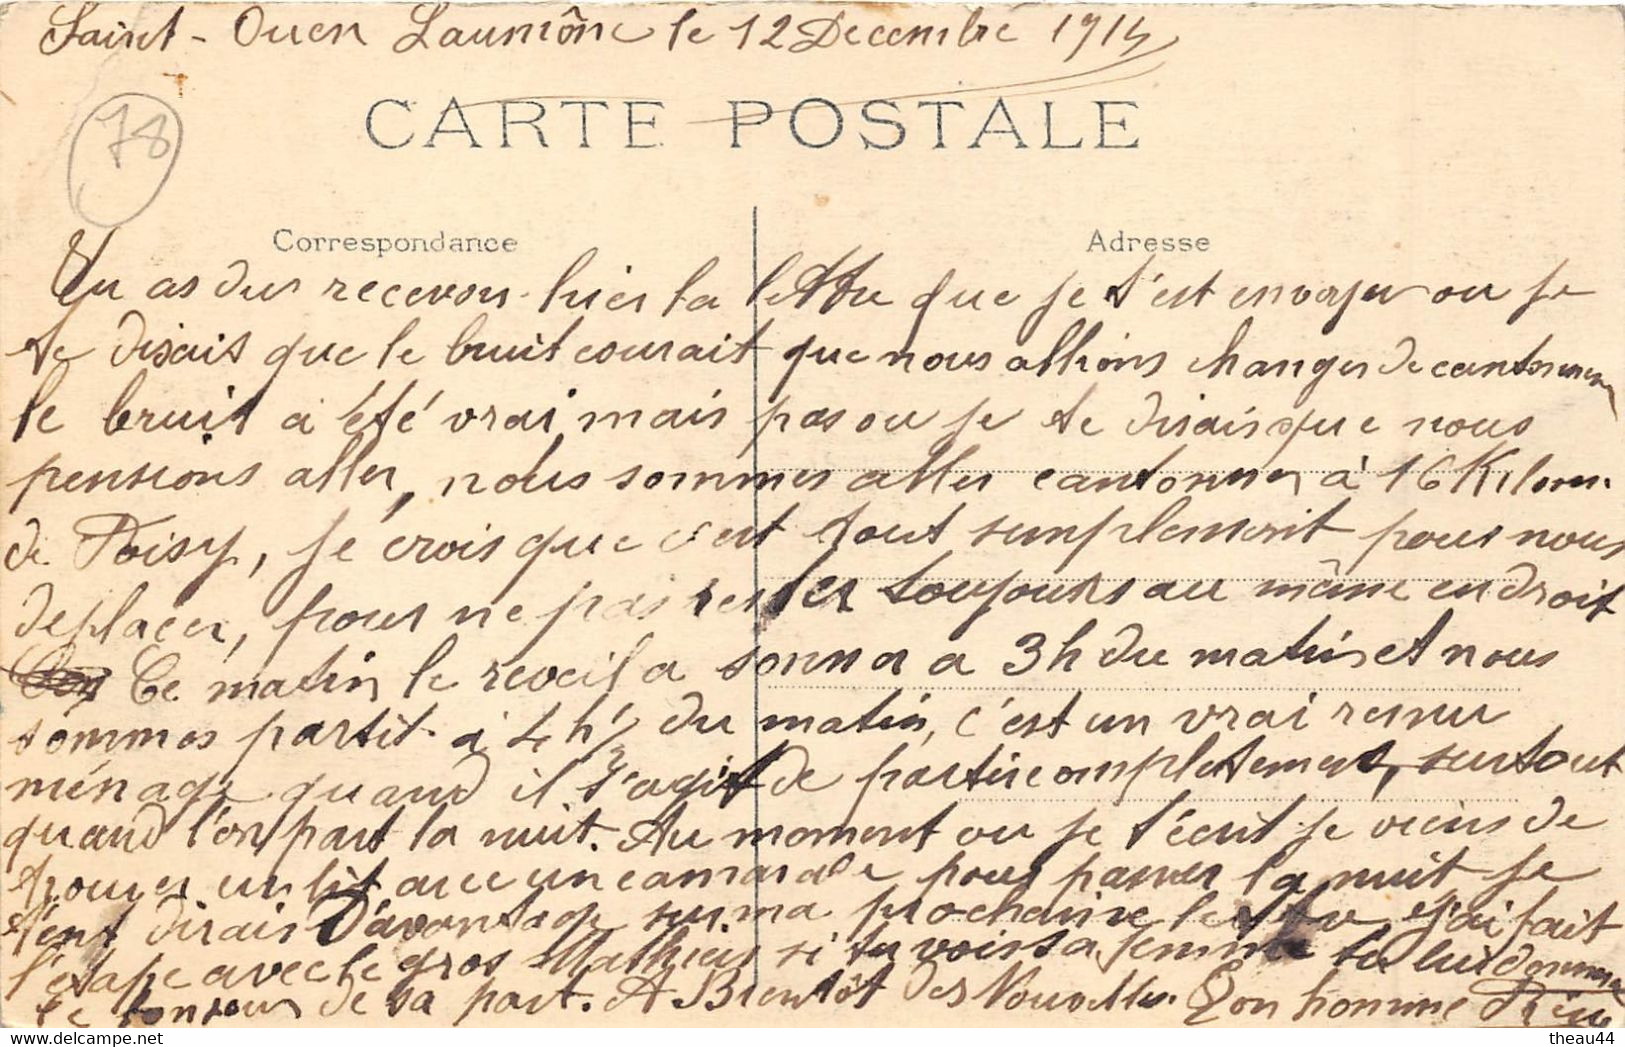 Saint-Ouen Laumône le 12 Decembre 1914
78
CARTE POSTALE
Correspondance
Adresse
Tu as dus recevoir hier la lettre que je t'est envoyer ou je
te disait que le bruit courait que nous allions changer de cantonnem
le bruit a été vrai mais pas ou je te disais que nous
pensions aller, nous sommes aller cantonner à 16 Kilom.
de Poisy, je crois que c'est tout simplement pour nous
deplacer, pour ne pas rester toujours au même endroit
Ce matin le reveil a sonner a 3h du matin et nous
sommes partit à 4h½ du matin, c'est un vrai remu
ménage quand il s'agit de partir completement, surtout
quand l'on part la nuit. Au moment ou je t'écrit je viens de
trouver un lit avec un camarade pour passer la nuit je
t'ent dirais d'avantage sur ma prochaine lettre j'ai fait
l'étape avec le gros Mathieu si tu vois sa femme tu lui donnera
le bonjour de sa part. A Bientôt des Nouvelles. Ton homme
theau44